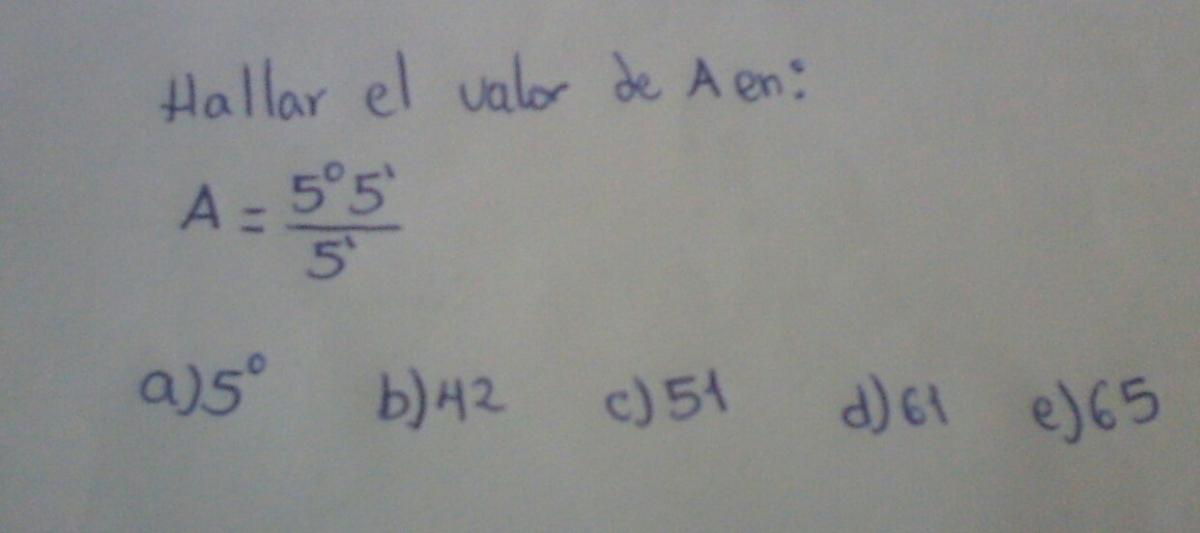 Hallar el valor de A en:
A = 5°5'
5'
a) 5° b) 42 c) 51 d) 61 e) 65